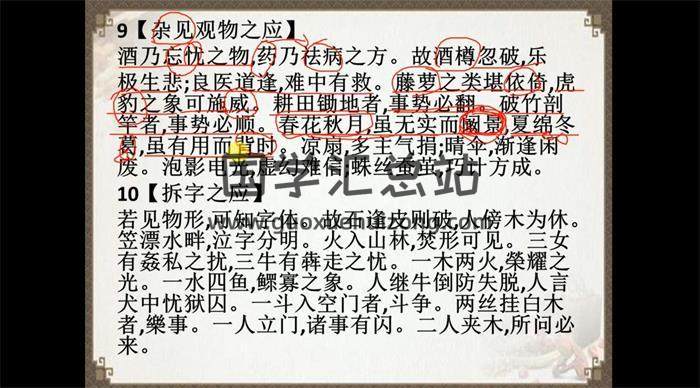 9【杂见观物之应】
酒乃忘忧之物,药乃祛病之方。故酒樽忽破,乐
极生悲;良医道逢,难中有救。藤萝之类堪依倚,虎
豹之象可施威。耕田锄地者,事势必翻。破竹剖
竿者,事势必顺。春花秋月,虽无实而關景,夏绵冬
葛,虽有用而背时。凉扇,多主气捐;晴伞,渐逢闲
废。泡影电光,虚幻难信;蛛丝蚕茧,巧计方成。
国学汇总站
10【拆字之应】
若见物形,可知字体。故石逢皮则破,人傍木为休。
www.guoxuehuizong.com
笠漂水畔,泣字分明。火入山林,焚形可见。三女
有姦私之扰,三牛有犇走之忧。一木两火,榮耀之
光。一水四鱼,鳏寡之象。人继牛倒防失脱,人言
犬中忧狱囚。一斗入空门者,斗争。两丝挂白木
者,樂事。一人立门,诸事有闪。二人夹木,所问必
来。